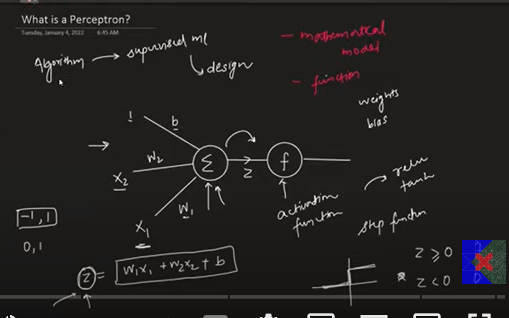 What is a Perceptron?
Tuesday, January 4, 2022 6:45 AM
Algorithm → supervised ml
↳ design
- mathematical
model
- function
weights
bias
1
b
→
x₂
w₂
Σ
z
f
x₁
w₁
activation
function
→ relu
tanh
step function
-1, 1
0, 1
z = w₁x₁ + w₂x₂ + b
z ≥ 0
z < 0